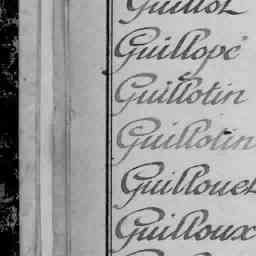 Guillot
Guillopé
Guillotin
Guillotin
Guillouet
Guilloux